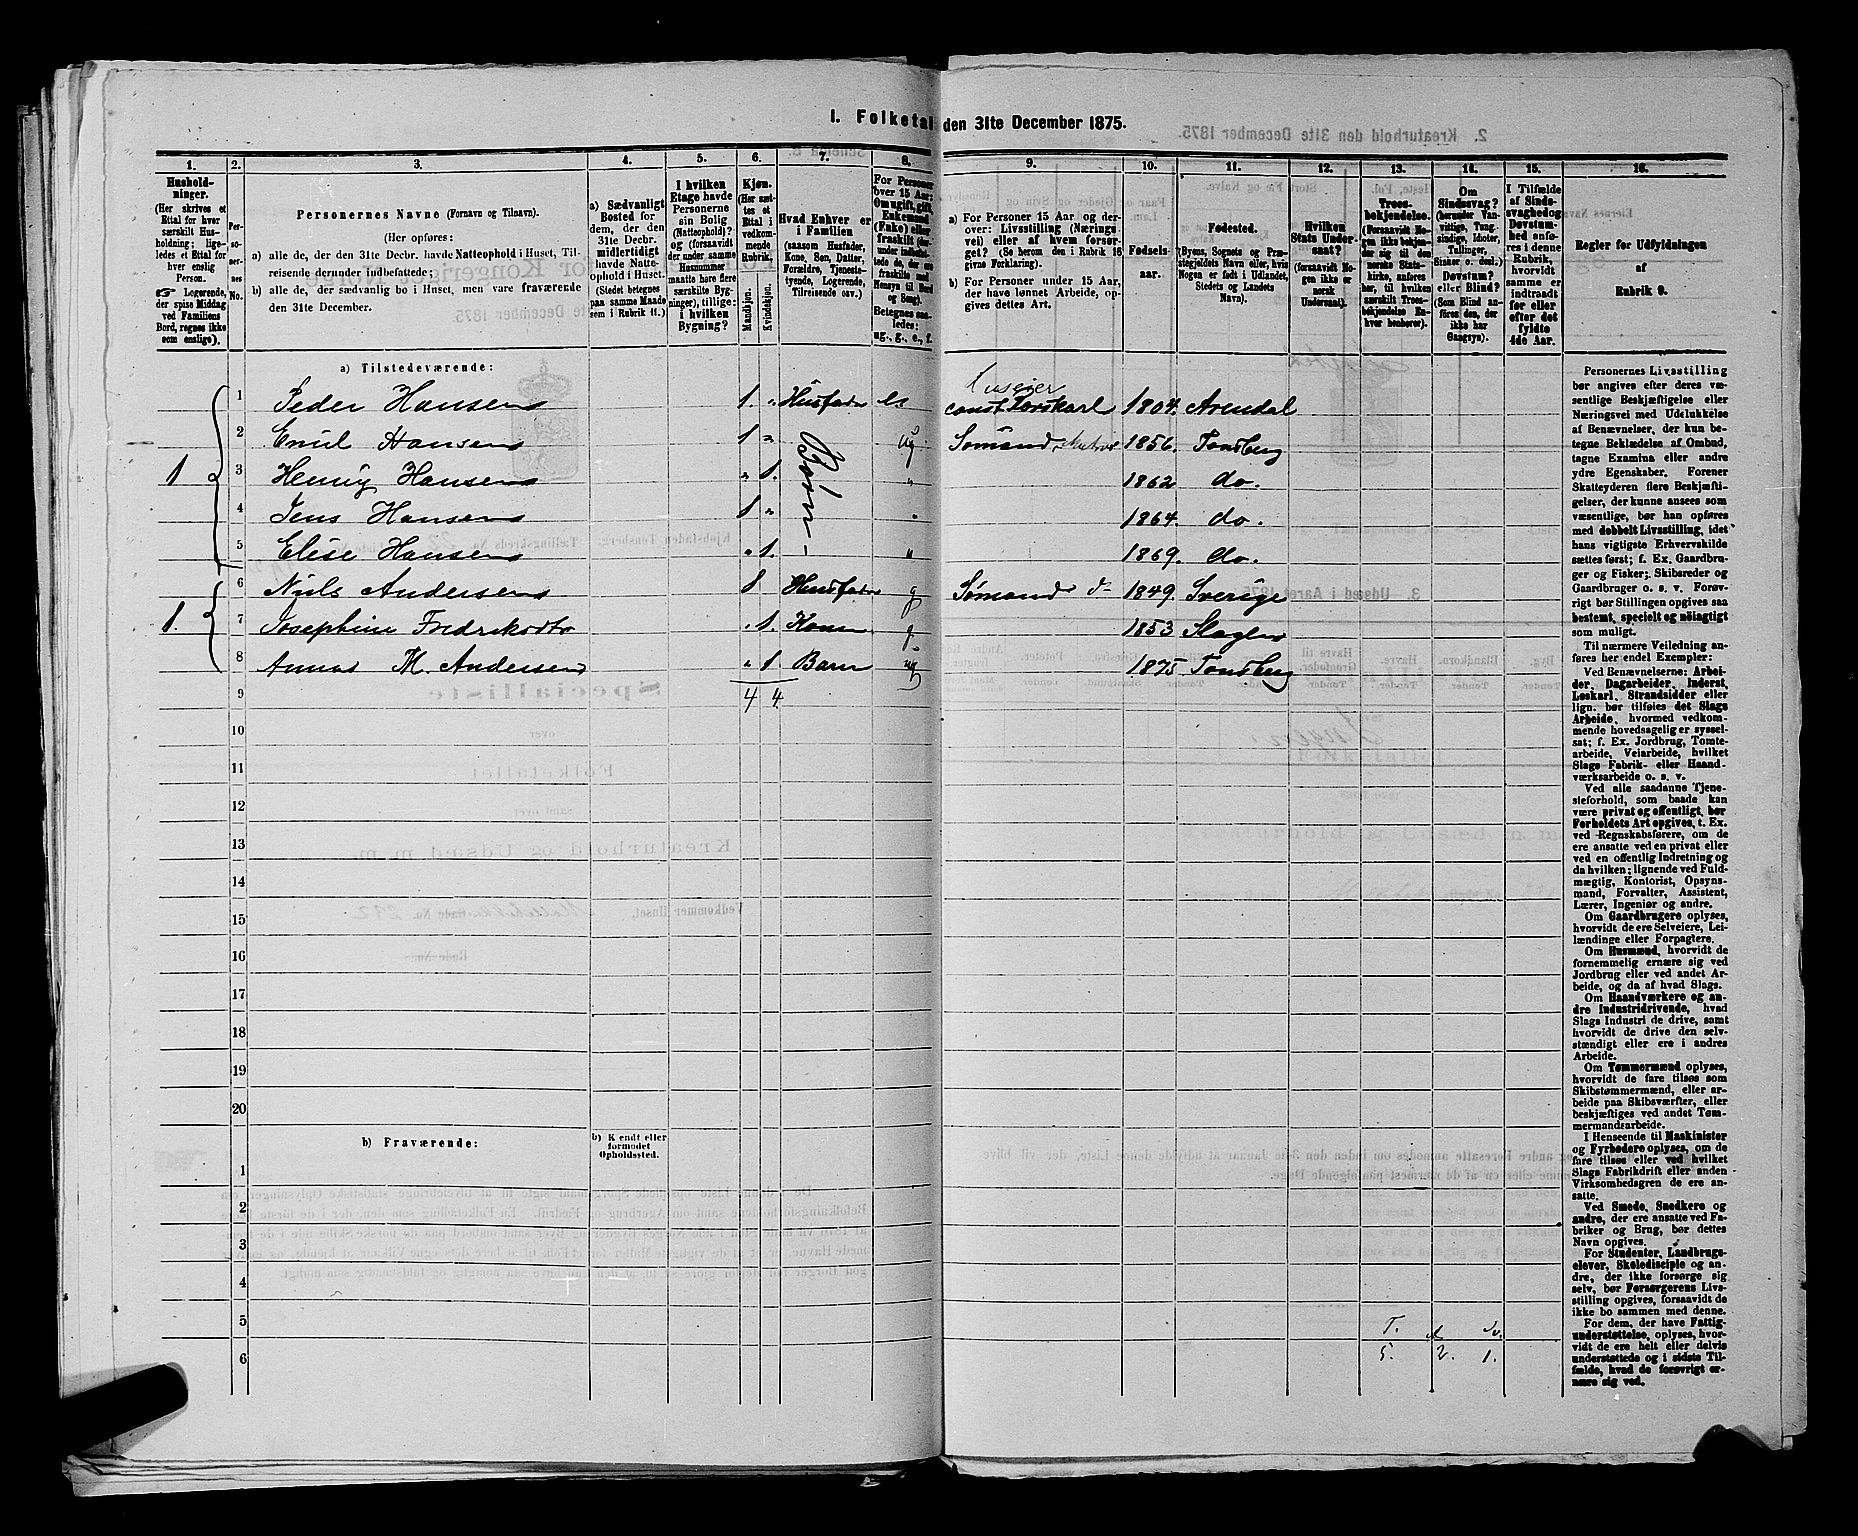 I. Folketal den 31te December 1875.
1. 2. 3. 4. 5. 6. 7. 8. 9. 10. 11. 12. 13. 14. 15. 16.
Hushold-
ninger.
(Her skrives et
Ettal for hver
særskilt Hus-
holdning; lige-
ledes et Ettal
for hver
enslig
Person.
☞ Logerende,
der spise Middag
ved Familiens
Bord, regnes ikke
som enslige).
Per-
so-
ner-
nes
No.
Personernes Navne (Fornavn og Tilnavn).
(Her opføres:
a) alle de, der den 31te Decbr. havde Natteophold i Huset, Til-
reisende derunder indbefattede;
b) alle de, der sædvanlig bo i Huset, men vare fraværende
den 31te December.
a) Sædvanligt
Bosted for
dem, der den
31te Decbr.
midlertidigt
havde Natte-
ophold i Huset.
(Stedet betegnes
paa samme Maade
som i Rubrik 11.)
I hvilken
Etage havde
Personerne
sin Bolig
(Natteophold)?
og (forsaavidt
der under samme
Husnummer
maatte høre flere
særskilte Byg-
ninger), tillige:
i hvilken
Bygning?
Kjøn.
(Her sæt-
tes et
Ettal i
vedkom-
mende
Rubrik.
Mandkjøn.
Kvindekjøn.
Hvad Enhver er
i Familien
(saasom Husfader,
Kone, Søn, Datter,
Forældre, Tjeneste-
tyende, Logerende,
Tilreisende osv.)
For Personer
over 15 Aar:
Om ugift, gift,
Enkemand
(Enke) eller
fraskilt
Betegnes saa-
ledes:
ug., g., e., f.
a) For Personer 15 Aar og der-
over: Livsstilling (Nærings-
vei) eller af hvem forsør-
get? (Se herom den i Rubrik 16
givne Forklaring).
b) For Personer under 15 Aar,
der have lønnet Arbeide, op-
gives dettes Art.
Fødsels-
aar.
Fødested.
(Byens, Sognets og Præ-
stegjeldets Navn, eller, hvis
Nogen er født i Udlandet,
Stedets og Landets
Navn).
Hvilken
Stats Under-
saat?
(forsaavidt No-
gen ikke er
norsk
Undersaat).
Troes-
bekjendelse.
(Forsaavidt No-
gen ikke bekjen-
der sig til den
norske Stats-
kirke, anføres
her, til hvilken
særskilt Troes-
bekjendelse En-
hver henhører).
Om
Sindssvag?
(herunder Van-
vittige, Tung-
sindige, Idioter,
Tullinger,
Sinker o. desl.)
Døvstum?
eller Blind?
(Som Blind an-
føres den, der
ikke har
Gangsyn).
I Tilfælde
af Sinds-
svaghed og
Døvstum-
hed anfø-
res i denne
Rubrik,
hvorvidt
samme er
indtraadt
før eller
efter det
fyldte
4de Aar.
Regler for Udfyldningen
af
Rubrik 9.
a) Tilstedeværende:
Huseier
1 Peder Hansen 1. " Husfader const. Torskarl 1804. Arendal
2 Emil Hansen 1 " Børn ug. Sømand 1856. Tønsberg
1 3 Henny Hansen " 1. " 1862 do.
4 Jens Hansen 1 " " 1864. do.
5 Elise Hansen " 1. " 1869. do.
6 Niels Andersen 1 Husfader g Sømand 1849. Sverige
1. 7 Josephine " 1. Kone g. 1853 Slagen
8 M. Andersen " 1 Barn ug 1875 Tønsberg
9 4 4.
10
11
12
13
14
15
16
17
18
19
20
b) Fraværende:
b) Kjendt eller
formodet
Opholdssted.
1
2
3
4
5
6
T.
5. 2. 1.
Personernes Livsstilling
bør angives efter deres væ-
sentlige Beskjæftigelse eller
Næringsvei med Udelukkelse
af Benævnelser, der kun be-
tegne Beklædelse af Ombud,
tagne Examina eller andre
ydre Egenskaber. Forener
Skatteyderen flere Beskjæfti-
gelser, der kunne ansees som
væsentlige, bør han opføres
med dobbelt Livsstilling, idet
hans vigtigste Erhvervskilde
sættes først; f. Ex. Gaardbru-
ger og Fisker; Skibsreder og
Gaardbruger o. s. v. Forøv-
rigt bør Stillingen opgives saa
bestemt, specielt og nöiagtigt
som muligt.
Til nærmere Veiledning an-
føres her endel Exempler:
Ved Benævnelserne: Arbei-
der, Dagarbeider, Inderst,
Løskarl, Strandsidder eller
lign. bør tilføies det Slags
Arbeide, hvormed vedkom-
mende hovedsagelig er syssel-
sat; f. Ex. Jordbrug, Tomte-
arbeide, Veiarbeide, hvilket
Slags Fabrik- eller Haand-
værksarbeide o. s. v.
Ved alle saadanne Tjene-
steforhold, som baade kan
være privat og offentligt, bør
Forholdets Art opgives, t. Ex.
ved Regnskabsførere, om de
ere ansatte ved en privat eller
ved en offentlig Indretning og
da hvilken; lignende ved Fuld-
mægtig, Kontorist, Opsyns-
mand, Forvalter, Assistent,
Lærer, Ingeniør og andre.
Om Gaardbrugere oplyses,
hvorvidt de ere Selveiere, Lei-
lændinge eller Forpagtere.
Om Husmænd, hvorvidt de
fornemmelig ernære sig ved
Jordbrug eller ved andet Ar-
beide, og da af hvad Slags.
Om Haandværkere og an-
dre Industridrivende, hvad
Slags Industri de drive, samt
hvorvidt de drive den selv-
stændigt eller ere i andres
Arbeide.
Om Tømmermænd oplyses,
hvorvidt de fare tilsøs som
Skibstømmermænd, eller ar-
beide paa Skibsværfter, eller
beskjæftiges ved andet Tøm-
mermandsarbeide.
I Henseende til Maskinister
og Fyrbødere oplyses, om de
fare tilsøs eller ved hvilket
Slags Fabrikdrift eller anden
Virksomhedsgren de ere an-
satte.
Ved Smede, Snedkere og
andre, der ere ansatte ved Fa-
briker og Brug, bør dettes
Navn opgives.
For Studenter, Landbrugs-
elever, Skoledisciple og an-
dre, der ikke forsørge sig
selv, bør Forsørgerens Livs-
stilling opgives, forsaavidt de
ikke bo sammen med denne.
For dem, der have Fattig-
understøttelse, oplyses, hvor-
vidt de ere helt eller delvis
understøttede og i sidste Til-
fælde, hvad de forøvrigt er-
nære sig ved.